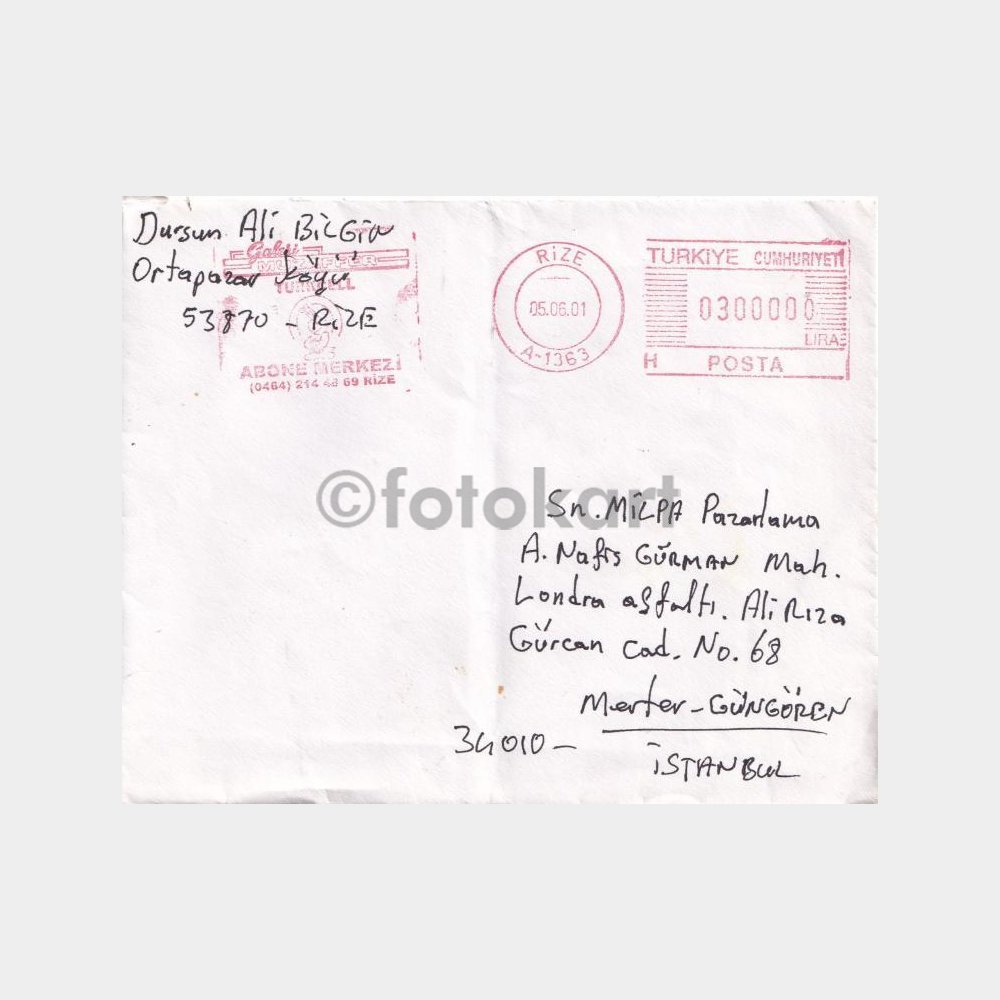 Dursun Ali BİLGİN
Ortapazar köyü
53870 - RİZE
TURKCELL
ABONE MERKEZİ
(0464) 214 48 69 RİZE
RİZE
05.06.01
A-1363
TÜRKİYE CUMHURİYETİ
0300000
LİRA
H POSTA
©fotokart
Sn. MİLPA Pazarlama
A. Nafis GÜRMAN Mah.
Londra asfaltı. Ali Rıza
Gürcan cad. No. 68
Merter - GÜNGÖREN
34010 -
İSTANBUL